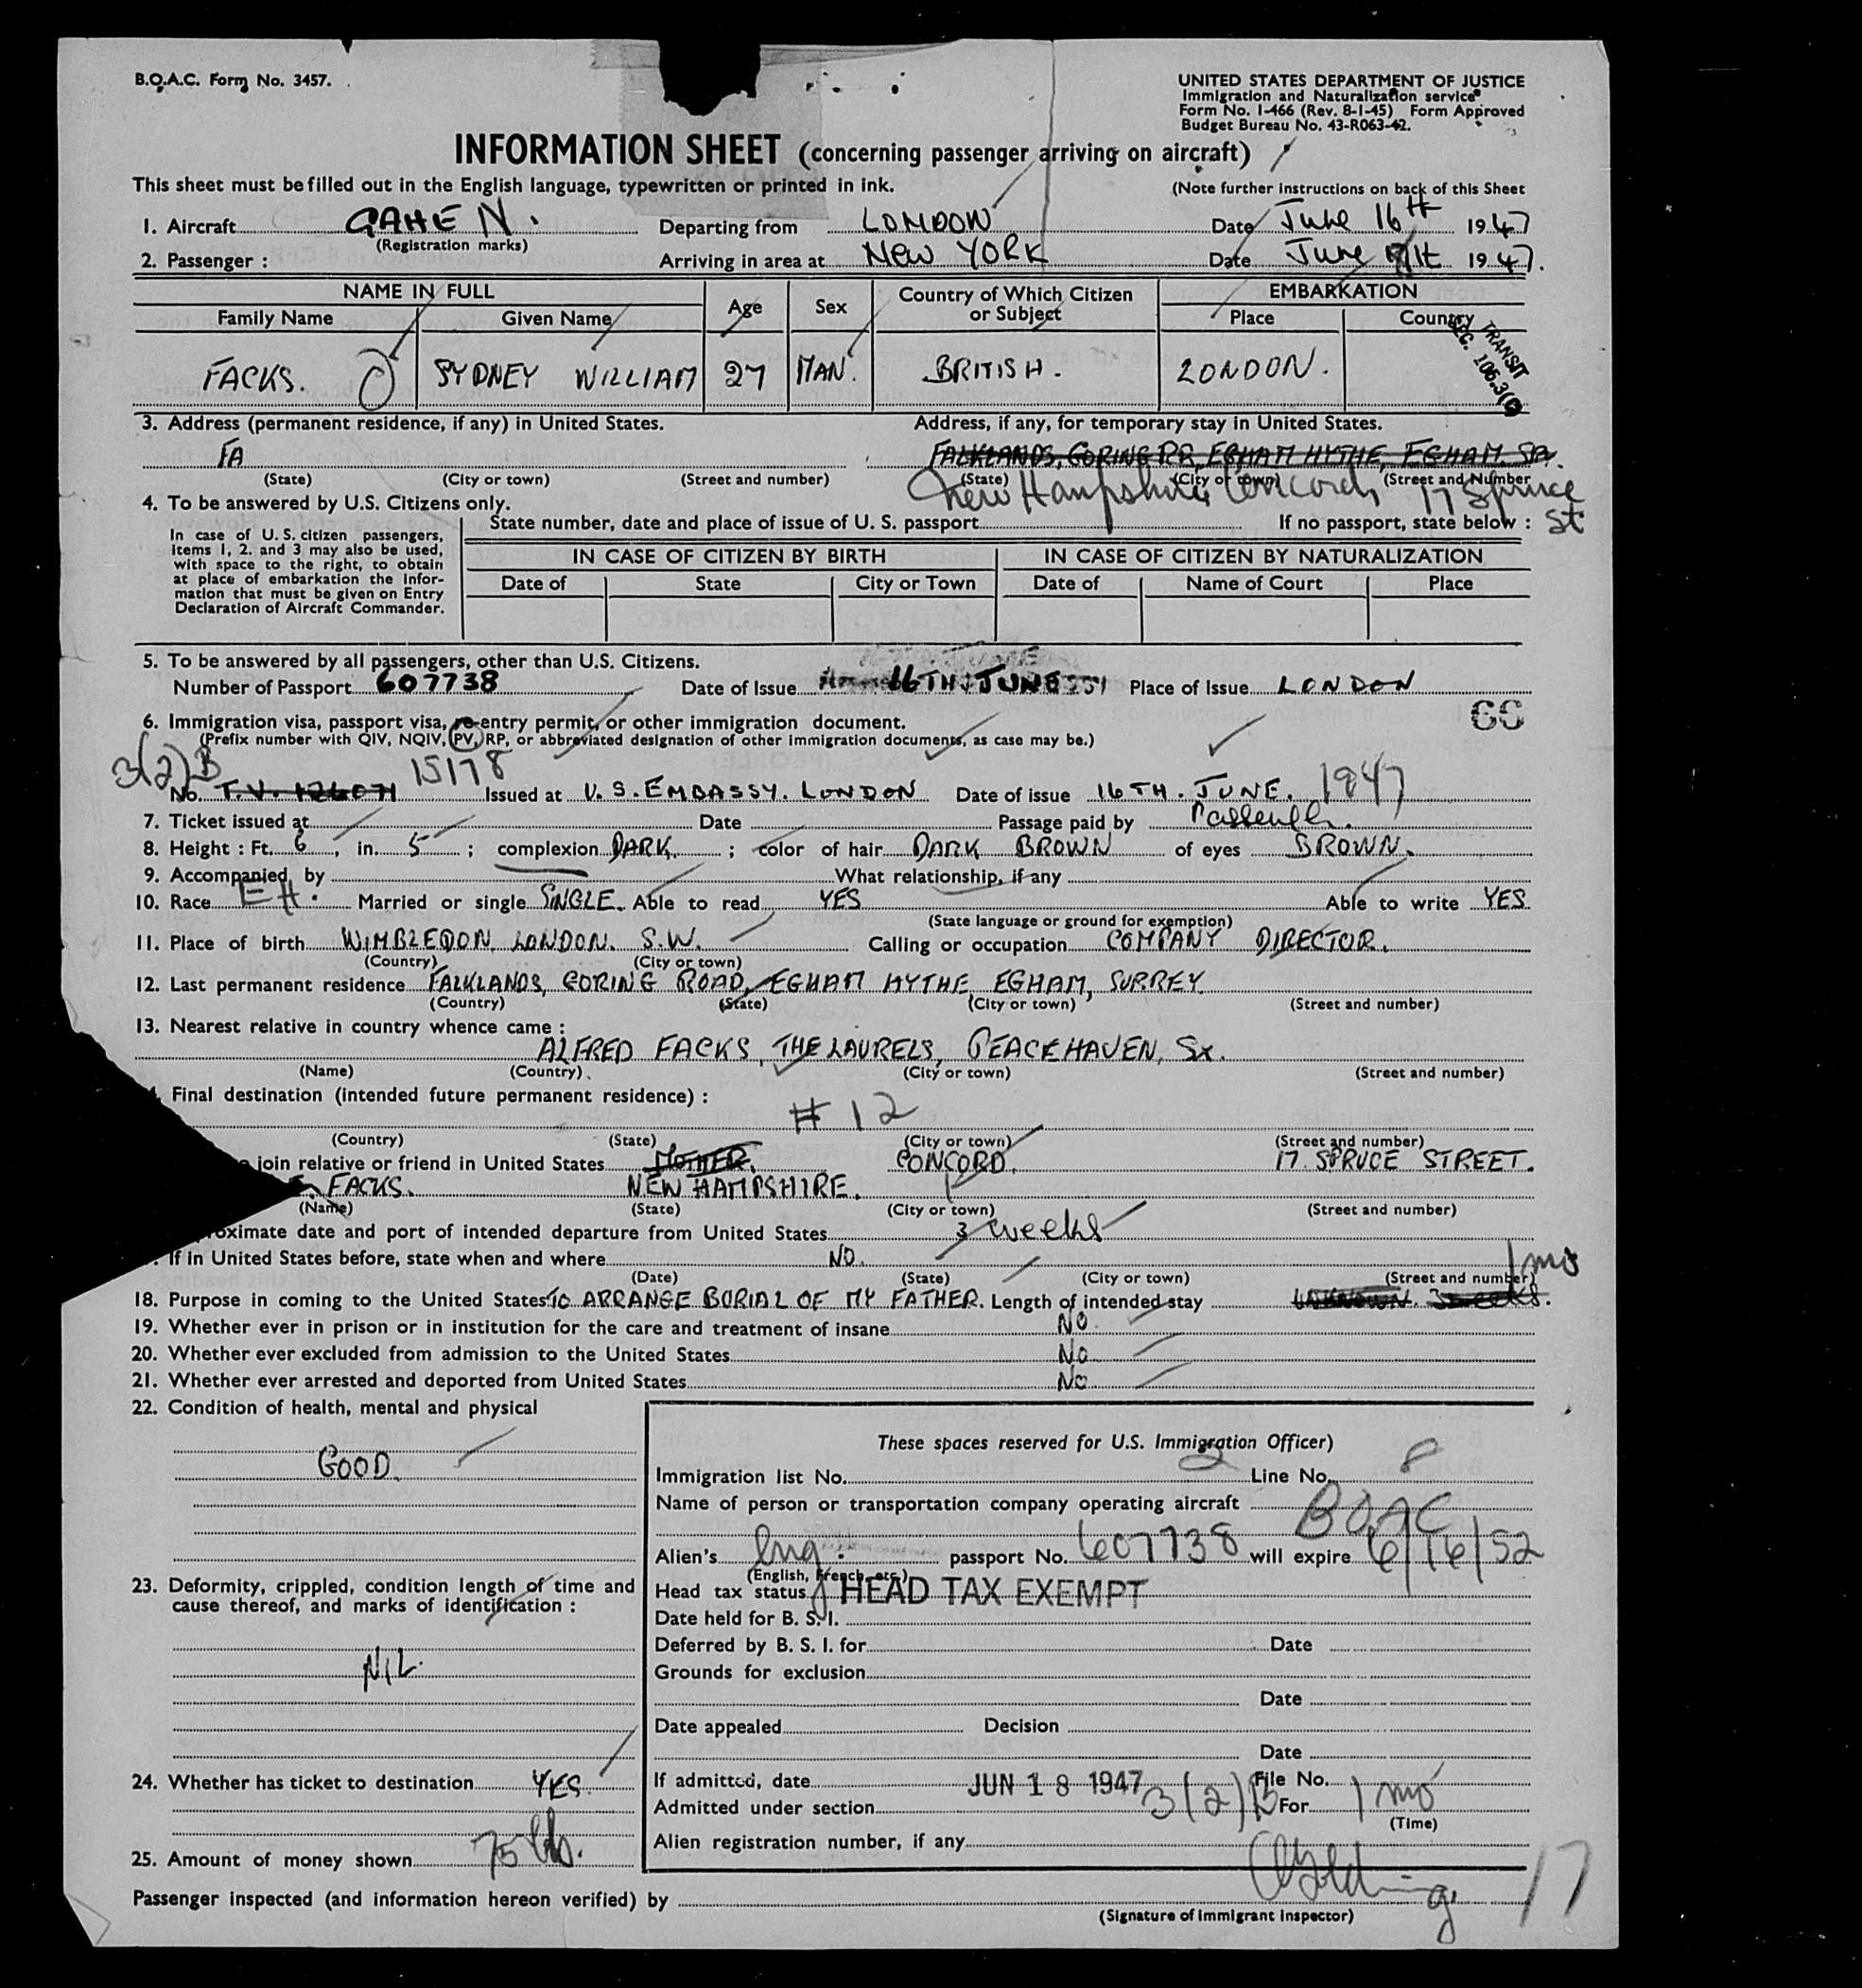 B.O.A.C. Form No. 3457.
UNITED STATES DEPARTMENT OF JUSTICE
Immigration and Naturalization service
Form No. I-466 (Rev. 8-1-45) Form Approved
Budget Bureau No. 43-R063-42.
INFORMATION SHEET (concerning passenger arriving on aircraft)
This sheet must be filled out in the English language, typewritten or printed in ink.
(Note further instructions on back of this Sheet
1. Aircraft GAHEN. Departing from LONDON Date June 16th 1947
(Registration marks)
2. Passenger : Arriving in area at NEW YORK Date June 1947.
NAME IN FULL Age Sex Country of Which Citizen or Subject EMBARKATION
Family Name Given Name Place Country
FACKS. SYDNEY WILLIAM 27 MAN. BRITISH. LONDON.
TRANSIT
SEC. 106.3(
3. Address (permanent residence, if any) in United States. Address, if any, for temporary stay in United States.
FA FALKLANDS, GORING RD, EGHAM HYTHE, EGHAM.
(State) (City or town) (Street and number) (State) (City or town) (Street and Number
New Hampshire Concord, 17 Spruce St
4. To be answered by U.S. Citizens only.
State number, date and place of issue of U. S. passport If no passport, state below :
In case of U. S. citizen passengers,
items 1, 2. and 3 may also be used,
with space to the right, to obtain
at place of embarkation the infor-
mation that must be given on Entry
Declaration of Aircraft Commander.
IN CASE OF CITIZEN BY BIRTH IN CASE OF CITIZEN BY NATURALIZATION
Date of State City or Town Date of Name of Court Place
5. To be answered by all passengers, other than U.S. Citizens.
Number of Passport 607738 Date of Issue 16TH JUNE Place of Issue LONDON
66
6. Immigration visa, passport visa, re-entry permit, or other immigration document.
(Prefix number with QIV, NQIV, PV, RP, or abbreviated designation of other immigration documents, as case may be.)
3(2)B 15178
No. T.V. 126071 Issued at U.S. EMBASSY. LONDON Date of issue 16TH. JUNE. 1947
7. Ticket issued at Date Passage paid by Passenger.
8. Height : Ft. 6, in. 5 ; complexion DARK. ; color of hair DARK BROWN of eyes BROWN.
9. Accompanied by What relationship, if any
10. Race EH. Married or single SINGLE. Able to read YES Able to write YES
(State language or ground for exemption)
11. Place of birth WIMBLEDON. LONDON. S.W. Calling or occupation COMPANY DIRECTOR.
(Country) (City or town)
12. Last permanent residence FALKLANDS, GORING ROAD, EGHAM HYTHE EGHAM, SURREY
(Country) (State) (City or town) (Street and number)
13. Nearest relative in country whence came :
ALFRED FACKS, THE LAURELS, PEACEHAVEN, Sx.
(Name) (Country) (City or town) (Street and number)
Final destination (intended future permanent residence) :
# 12
(Country) (State) (City or town) (Street and number)
join relative or friend in United States MOTHER. CONCORD. 17. SPRUCE STREET.
FACKS. NEW HAMPSHIRE.
(Name) (State) (City or town) (Street and number)
oximate date and port of intended departure from United States 3 weeks
. If in United States before, state when and where NO.
(Date) (State) (City or town) (Street and number)
1 mo
18. Purpose in coming to the United States TO ARRANGE BURIAL OF MY FATHER. Length of intended stay UNKNOWN. 3 weeks.
19. Whether ever in prison or in institution for the care and treatment of insane NO
20. Whether ever excluded from admission to the United States No
21. Whether ever arrested and deported from United States No
22. Condition of health, mental and physical
GOOD.
These spaces reserved for U.S. Immigration Officer)
Immigration list No. 2 Line No. 8
Name of person or transportation company operating aircraft BOAC
Alien's Eng. passport No. 607738 will expire 6/16/52
(English, French, etc.)
Head tax status HEAD TAX EXEMPT
23. Deformity, crippled, condition length of time and
cause thereof, and marks of identification :
NIL.
Date held for B. S. I.
Deferred by B. S. I. for Date
Grounds for exclusion
Date
Date appealed Decision
Date
24. Whether has ticket to destination YES.
If admitted, date JUN 18 1947 File No.
Admitted under section 3(2)B For 1 mo
(Time)
Alien registration number, if any
25. Amount of money shown 75
Passenger inspected (and information hereon verified) by Golding
(Signature of Immigrant Inspector)
17